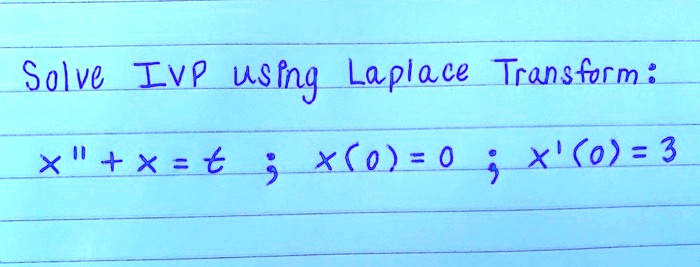 Solve IVP using Laplace Transform:
x" + x = t ; x(0) = 0 ; x'(0) = 3